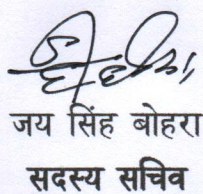 जय सिंह बोहरा
सदस्य सचिव